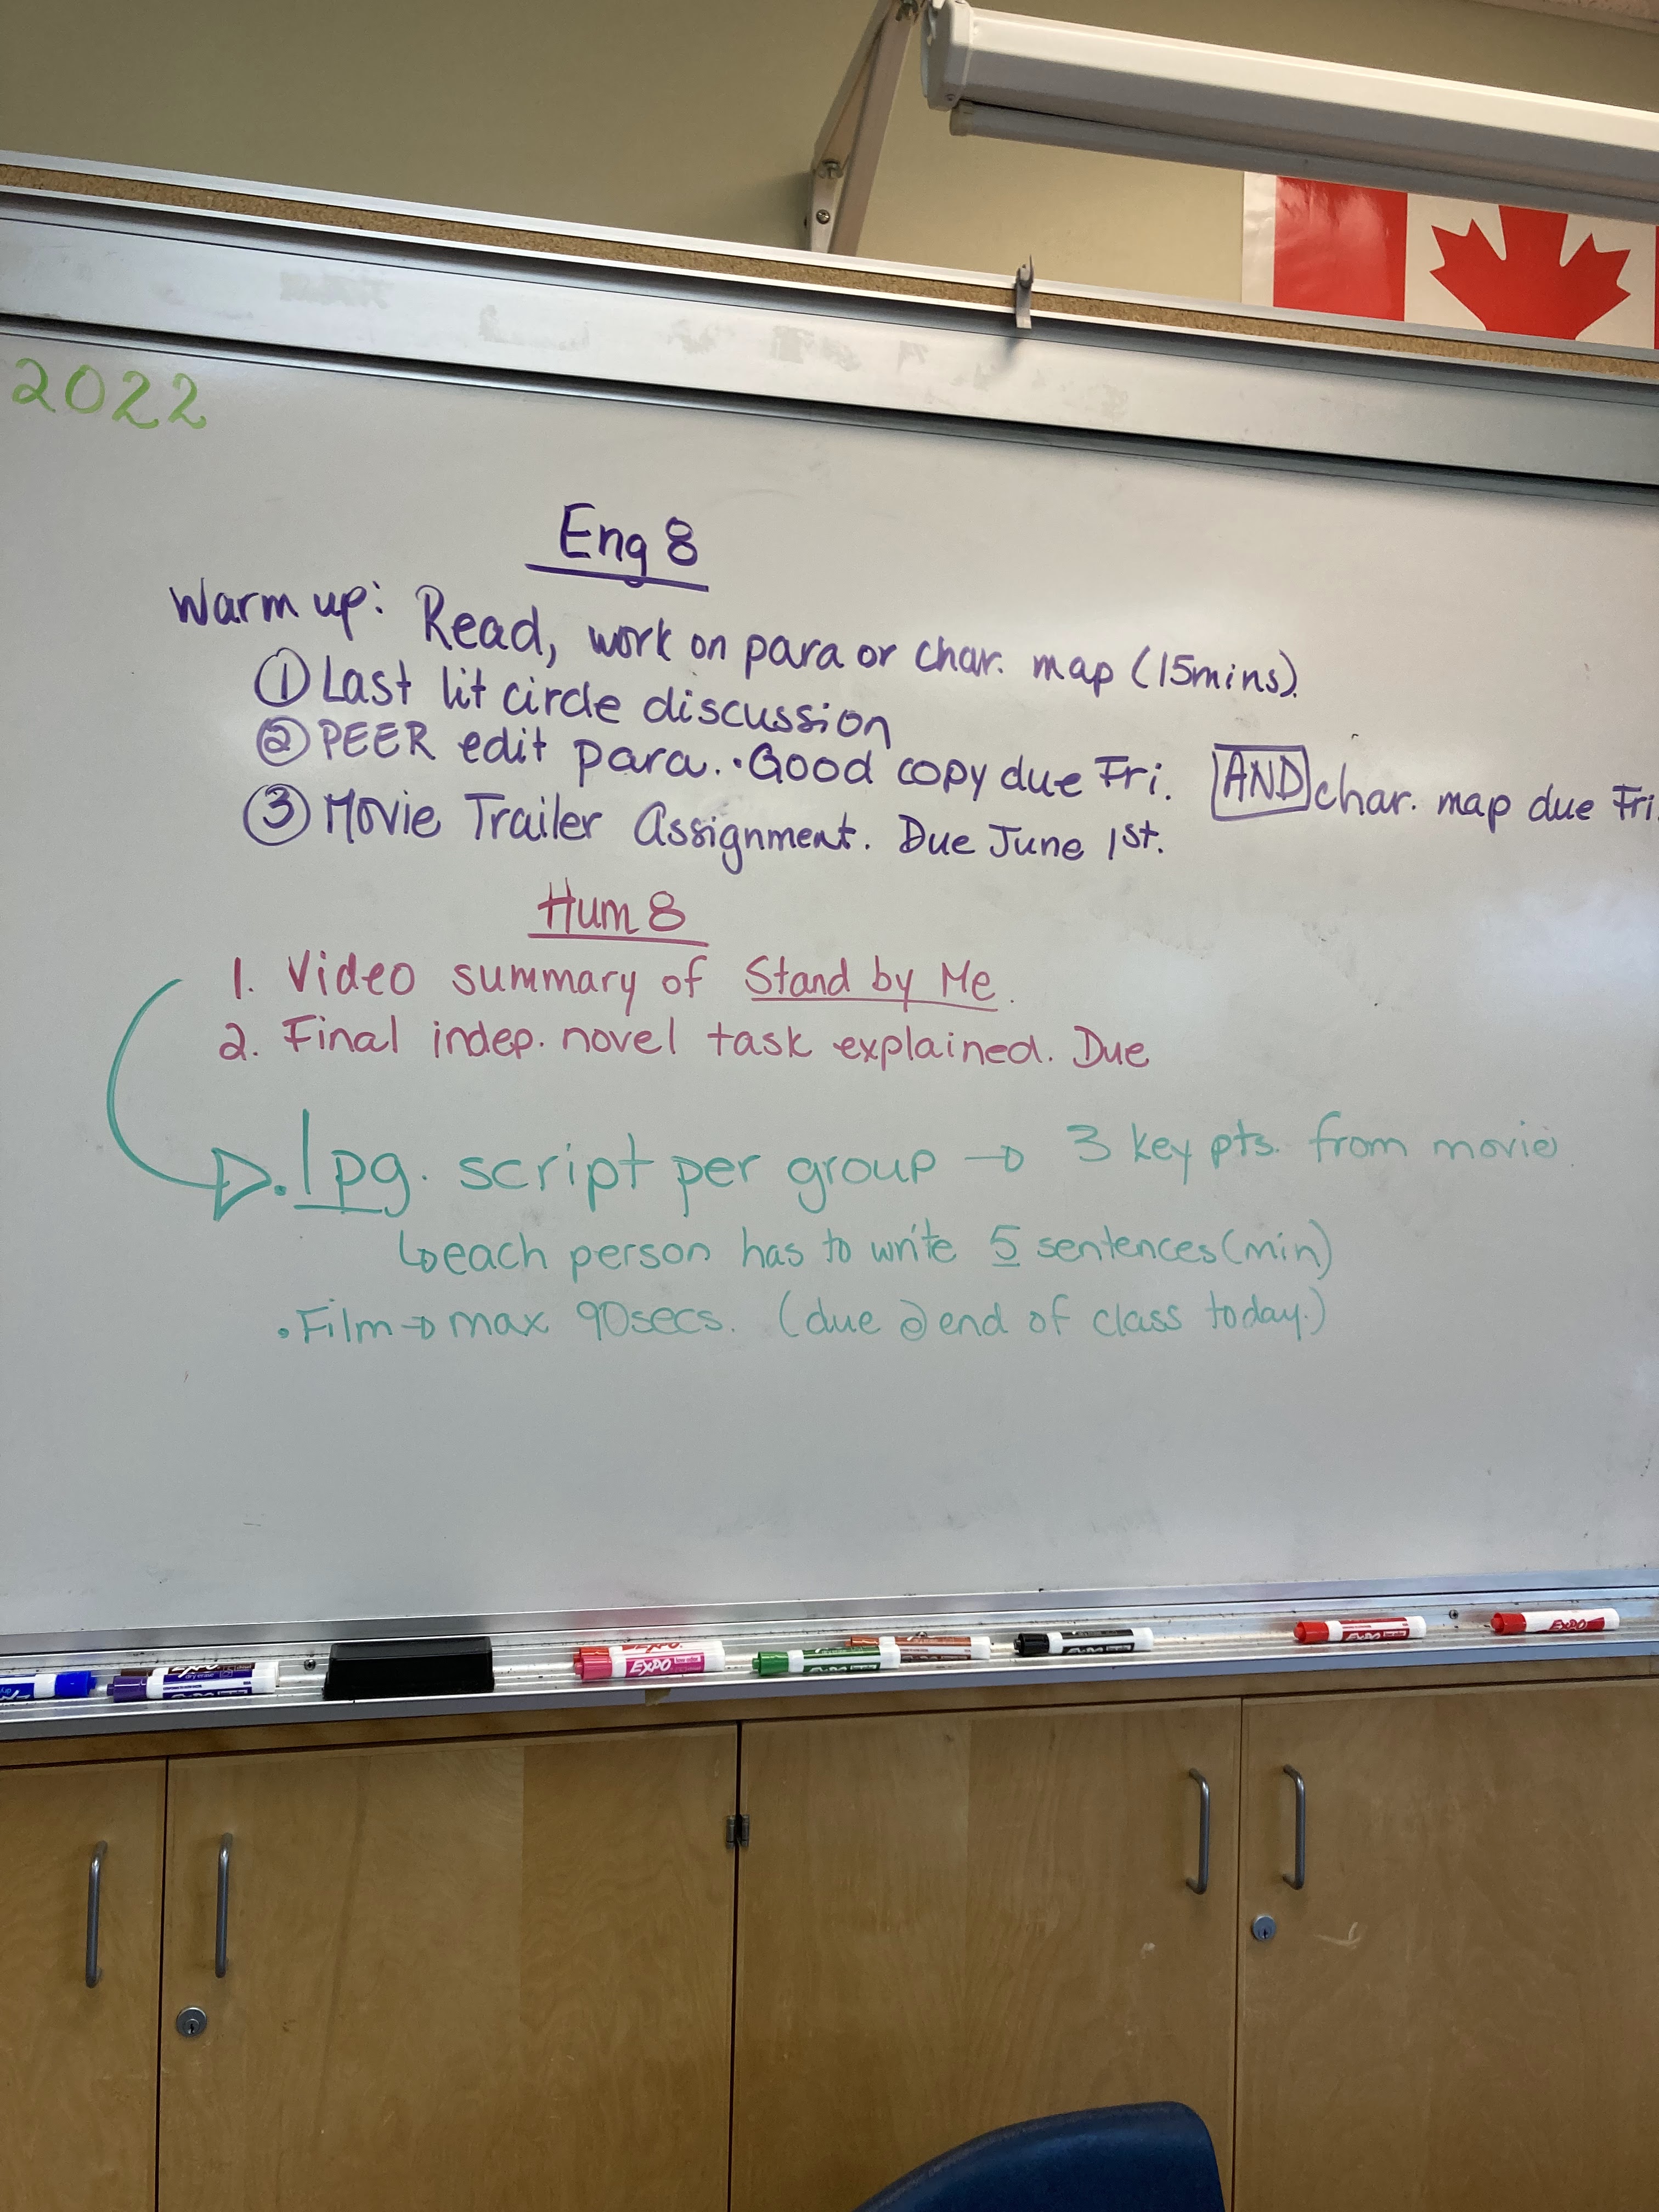 2022
Eng 8
Warm up: Read, work on para or char. map (15mins).
① Last lit circle discussion
② PEER edit para. • Good copy due Fri. AND char. map due Fri.
③ Movie Trailer Assignment. Due June 1st.
Hum 8
1. Video summary of Stand by Me.
2. Final indep. novel task explained. Due
• 1 pg. script per group → 3 key pts. from movie.
↳ each person has to write 5 sentences (min)
• Film → max 90secs. (due @ end of class today.)
EXPO
EXPO
EXPO